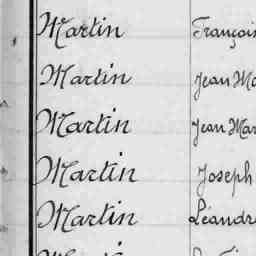 Martin François
Martin Jean Ma
Martin Jean Mar
Martin Joseph
Martin Léandre